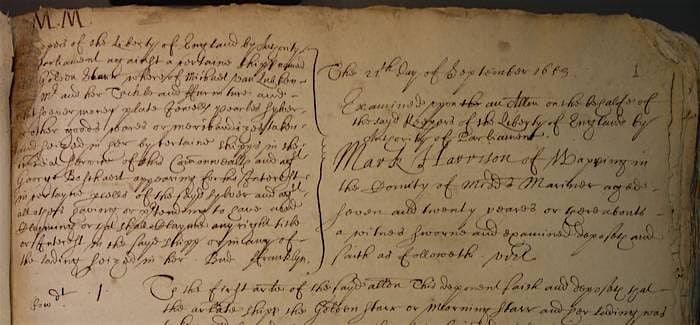 M. M
Keepers of the Liberty of England by Authority
Parliament against a certaine shipp named
Golden Starr whereof Michael van Lubken
Mr and her Tackle and Furniture and
the seever money plate Jewells pearles
other goods wares or merchandizes taken
and seized in her by certaine shipps in the
service of this Commonwealth and agt
George Boschaert appearing for his Interest
in certayne peeces of the sayd sylver and agt
all others having or pretending to have
any right title
or Interest in the sayd shipp or in any of
the lading seized in her Bud Francklyn.
The 21th day of September 1653. 1
Examined upon the an Allon on the behalfe of
the sayd Keepers of the Liberty of England by
Authority of Parliament
Mark Harrison of Wapping in
the County of Midds Mariner aged
seven and twenty yeares or thereabouts
a witnes sworne and examined deposeth and
saith as followeth. vizt
Rowe dt. 1.
To the first arte of the sayd allon This deponent saith and deposeth that
the arlate shipp the Golden Starr or Morning Starr and her lading was